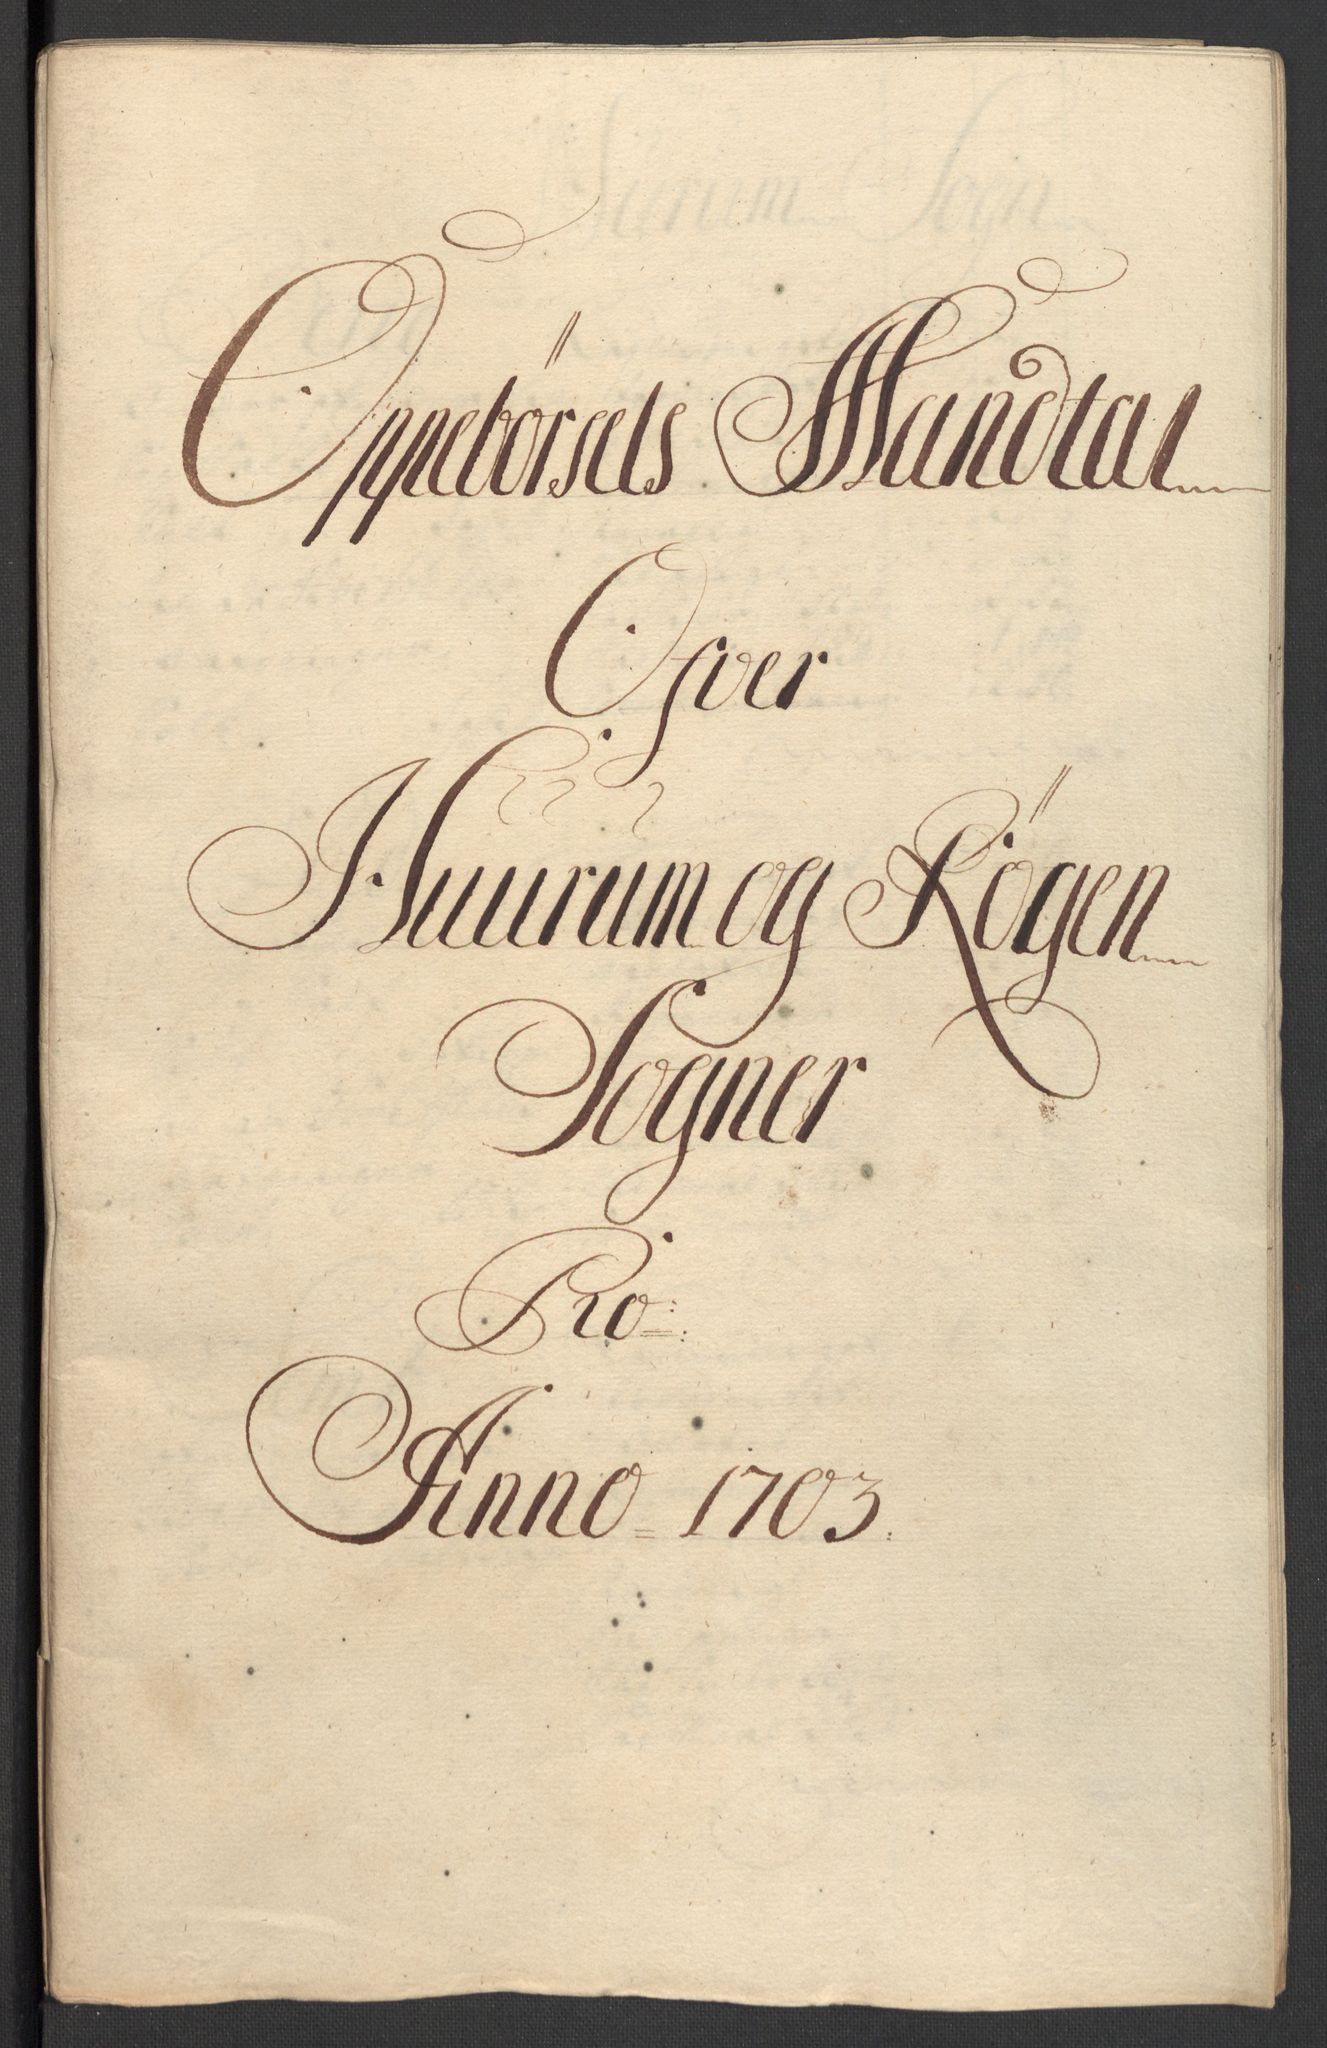 Oppebörsels Mandtal
Ofver
Huurum og Rögen
Sogner
Pro
Anno 1703.